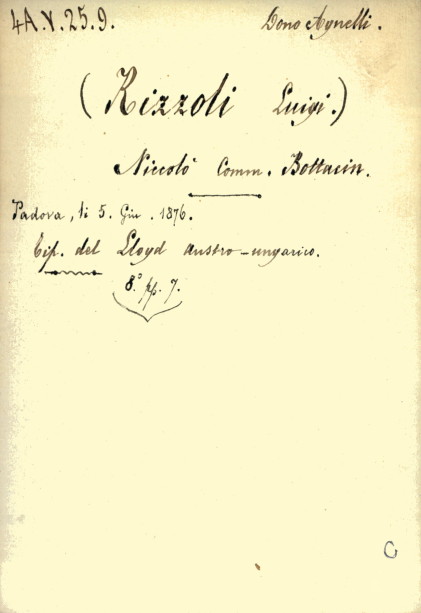 4A.V.25.9. Dono Agnelli.
(Rizzoli Luigi.)
Niccolò Comm. Bottacin.
Padova, li 5. Giu. 1876.
Tip. del Lloyd austro-ungarico.
8.° pp. 7.
C